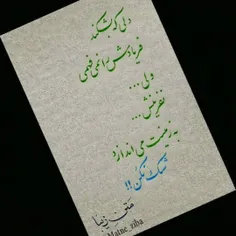 دلی که بشکند
فریادش را نمی فهمی
ولی ...
نفرینش ...
به زمینت می اندازد
شک نکن !!
متن زیبا
Matne_ziba